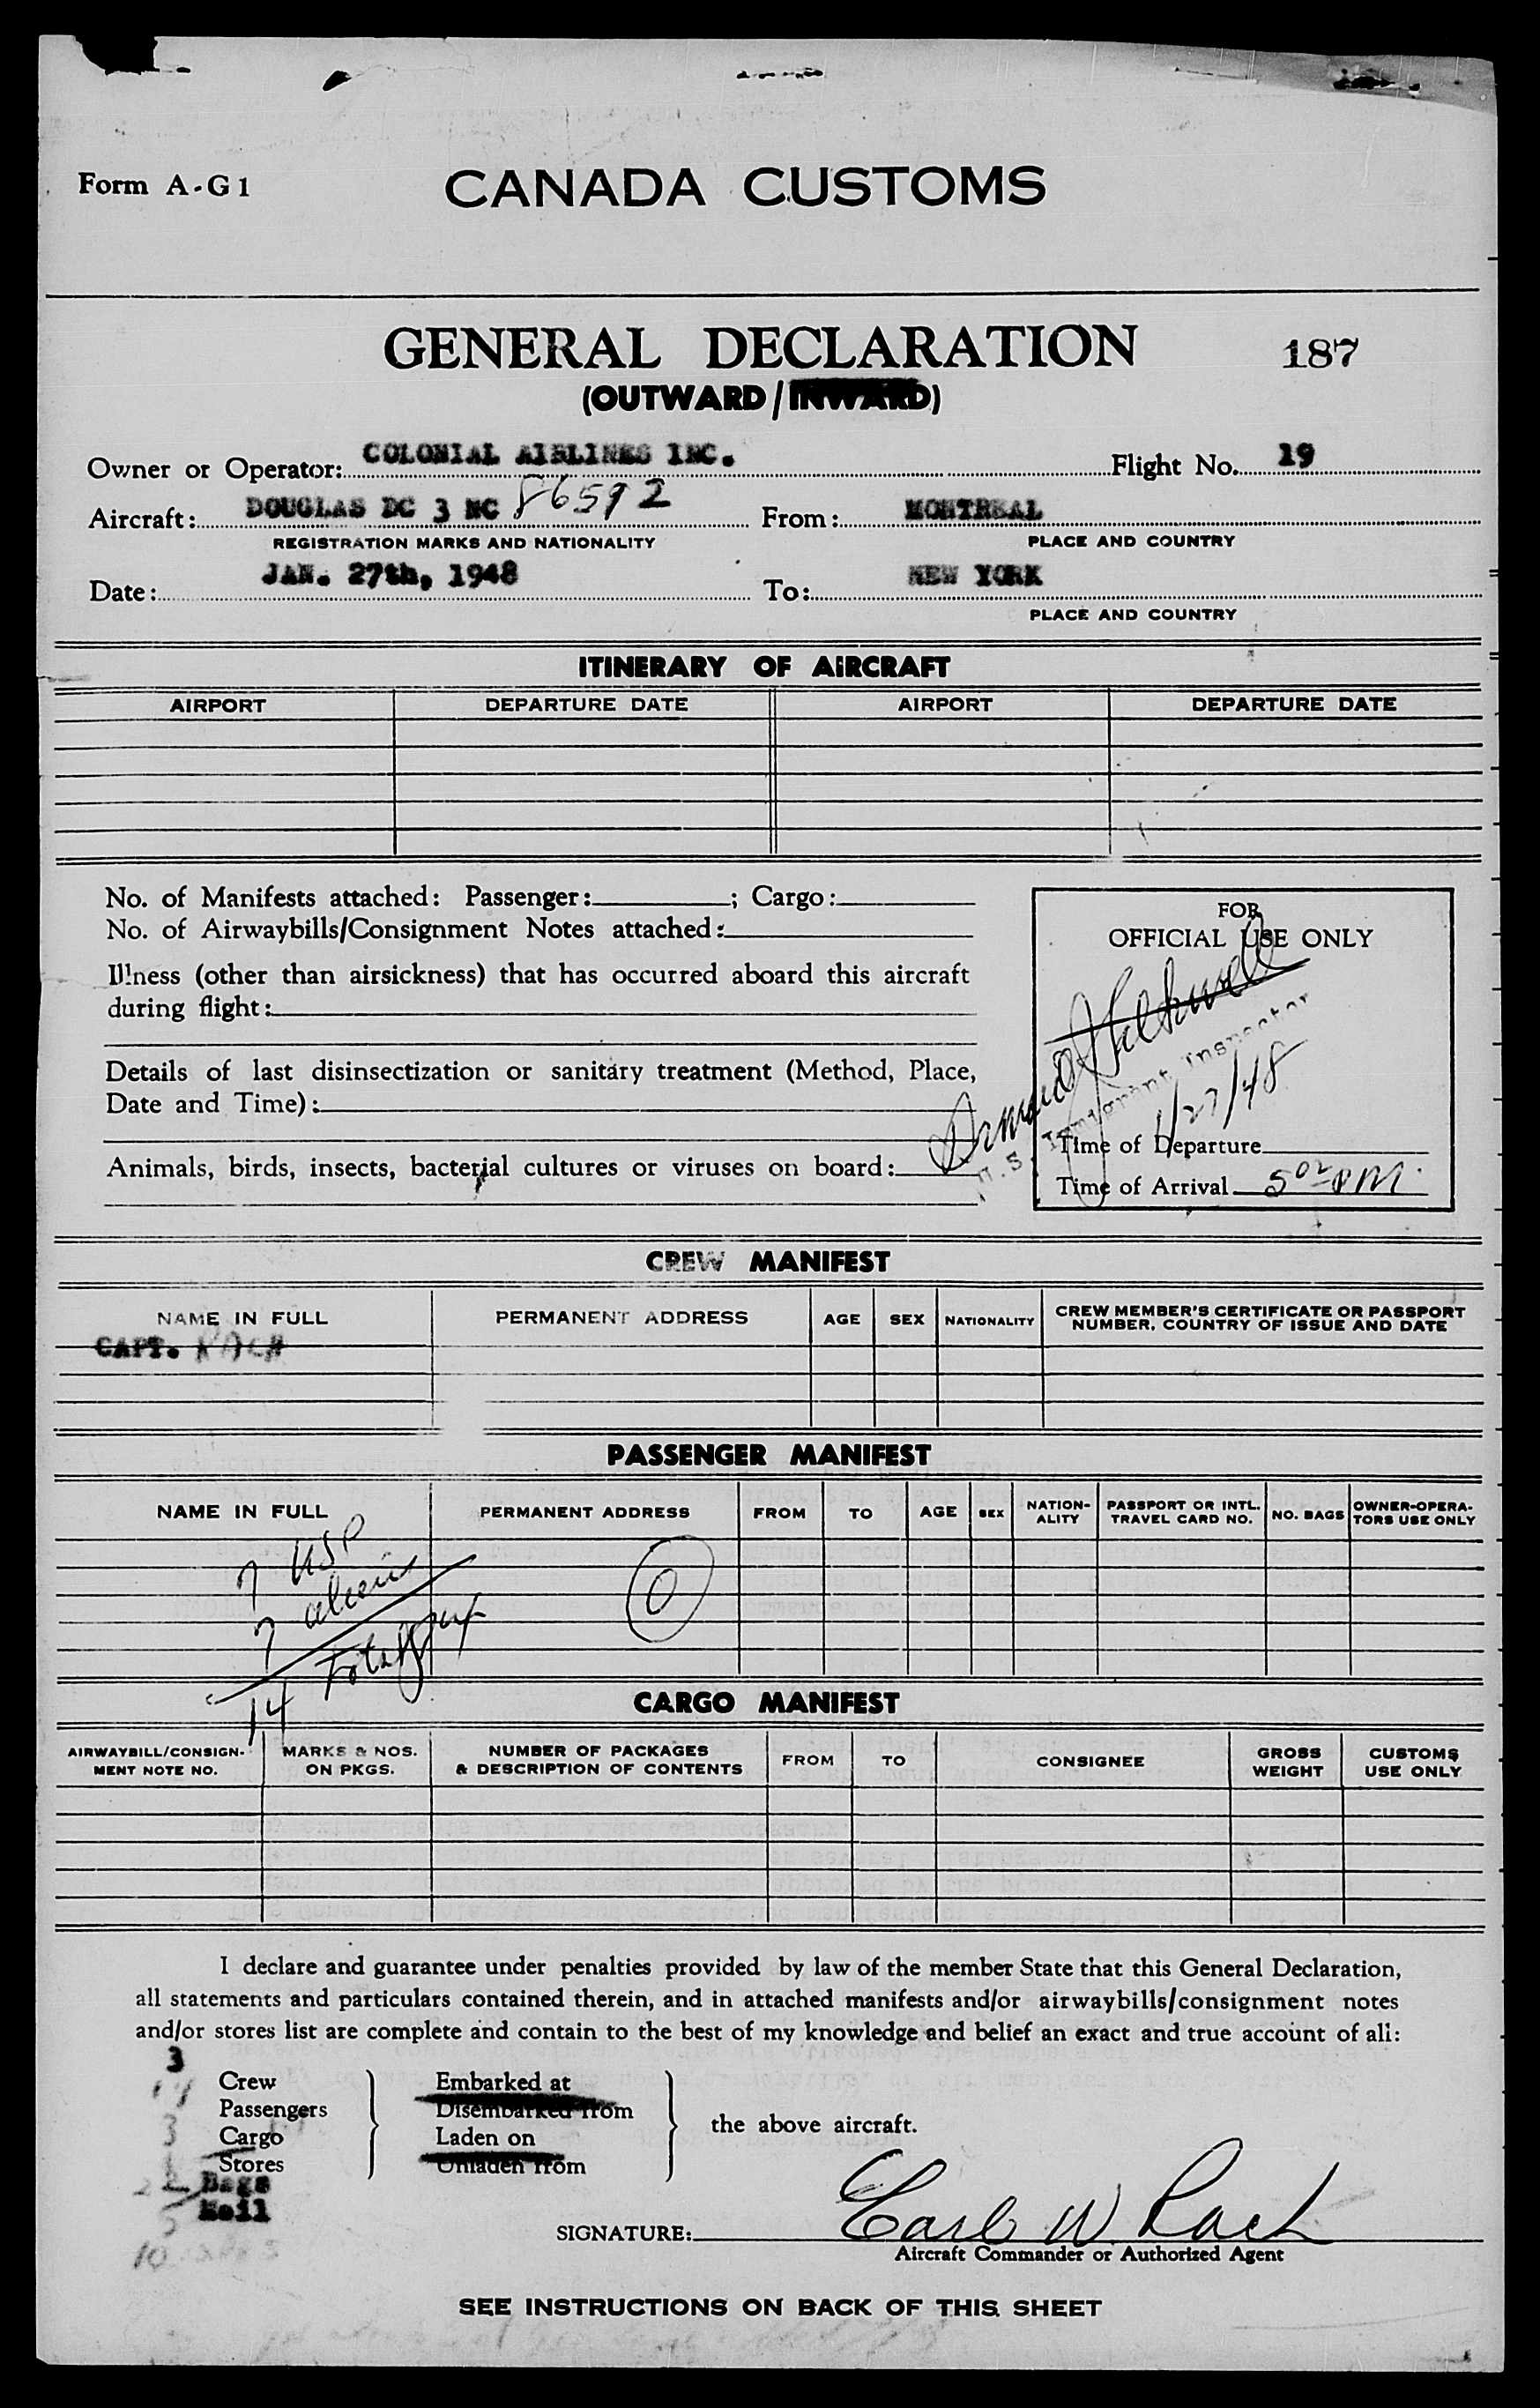 Form A-G1
CANADA CUSTOMS
GENERAL DECLARATION 187
(OUTWARD/INWARD)
Owner or Operator: COLONIAL AIRLINES INC. Flight No. 19
Aircraft: DOUGLAS DC 3 NC 86592 From: MONTREAL
REGISTRATION MARKS AND NATIONALITY PLACE AND COUNTRY
Date: JAN. 27th, 1948 To: NEW YORK
PLACE AND COUNTRY
ITINERARY OF AIRCRAFT
AIRPORT DEPARTURE DATE AIRPORT DEPARTURE DATE
No. of Manifests attached: Passenger: ; Cargo:
No. of Airwaybills/Consignment Notes attached:
Illness (other than airsickness) that has occurred aboard this aircraft
during flight:
Details of last disinsectization or sanitary treatment (Method, Place,
Date and Time):
Animals, birds, insects, bacterial cultures or viruses on board:
FOR
OFFICIAL USE ONLY
U.S. Immigrant Inspector
1/27/48
Time of Departure
Time of Arrival 5 02 PM
CREW MANIFEST
NAME IN FULL PERMANENT ADDRESS AGE SEX NATIONALITY CREW MEMBER'S CERTIFICATE OR PASSPORT
NUMBER, COUNTRY OF ISSUE AND DATE
CAPT. RACH
PASSENGER MANIFEST
NAME IN FULL PERMANENT ADDRESS FROM TO AGE SEX NATION-
ALITY PASSPORT OR INTL.
TRAVEL CARD NO. NO. BAGS OWNER-OPERA-
TORS USE ONLY
7 USP
7 aliens
14 Total
0
CARGO MANIFEST
AIRWAYBILL/CONSIGN-
MENT NOTE NO. MARKS & NOS.
ON PKGS. NUMBER OF PACKAGES
& DESCRIPTION OF CONTENTS FROM TO CONSIGNEE GROSS
WEIGHT CUSTOMS
USE ONLY
I declare and guarantee under penalties provided by law of the member State that this General Declaration,
all statements and particulars contained therein, and in attached manifests and/or airwaybills/consignment notes
and/or stores list are complete and contain to the best of my knowledge and belief an exact and true account of all:
3 Crew Embarked at
14 Passengers Disembarked from
3 Cargo Laden on the above aircraft.
Stores Unladen from
Bags
Mail
10
SIGNATURE: Earl W. Rach
Aircraft Commander or Authorized Agent
SEE INSTRUCTIONS ON BACK OF THIS SHEET